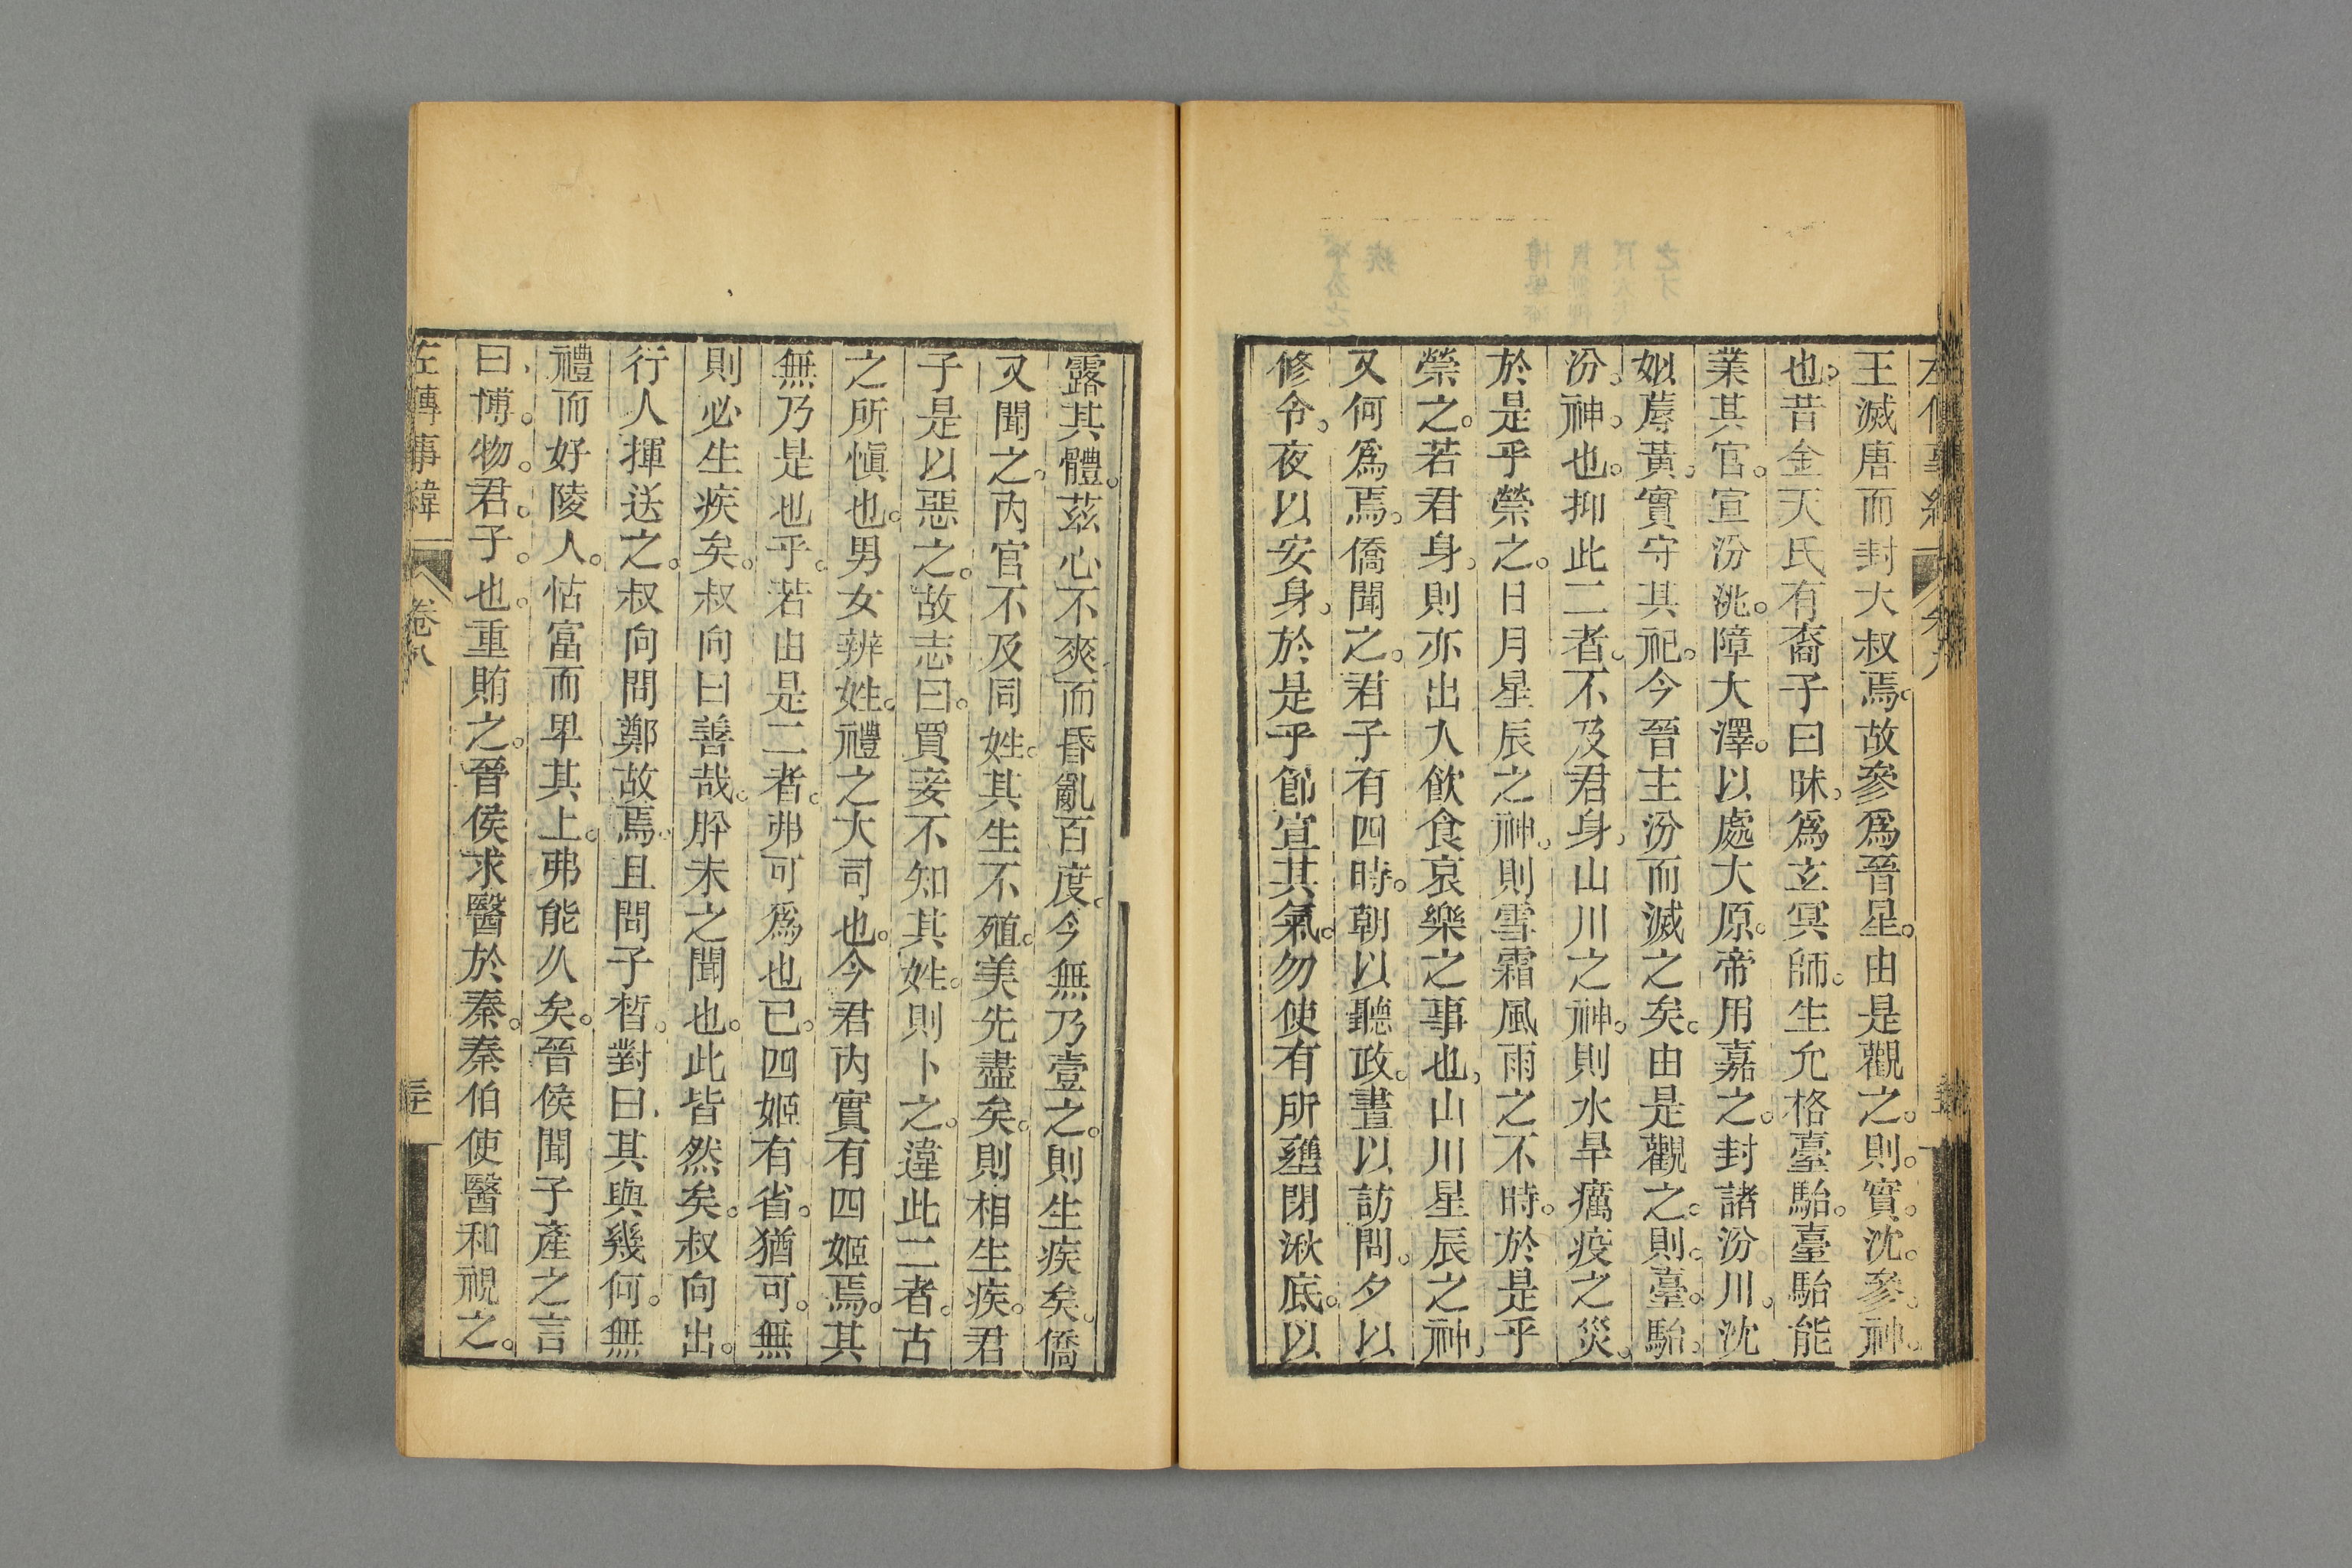 王滅唐而封大叔焉。故參爲晉星。由是觀之。則。實。沈。參。神。
也。昔金天氏有裔子曰昧。爲玄冥師。生允格臺駘。臺駘能
業其官。宣汾洮。障大澤。以處大原。帝用嘉之。封諸汾川。沈
姒蓐黃。實守其祀。今晉主汾而滅之矣。由是觀之。則。臺。駘。
汾。神。也。抑此二者。不及君身。山川之神。則水旱癘疫之災。
於是乎禜之。日月星辰之神。則雪霜風雨之不時。於是乎
禜之。若君身。則亦出入飲食哀樂之事也。山川星辰之神。
又何爲焉。僑聞之。君子有四時。朝以聽政。晝以訪問。夕以
修令。夜以安身。於是乎節宣其氣。勿使有所壅閉湫底。以
露其體。茲心不爽而昏亂百度。今無乃壹之。則生疾矣。僑
又聞之。內官不及同姓。其生不殖。美先盡矣。則相生疾。君
子是以惡之。故志曰。買妾不知其姓。則卜之。違此二者。古
之所愼也。男女辨姓。禮之大司也。今君內實有四姬焉。其
無乃是也乎。若由是二者。弗可爲也已。四姬有省。猶可。無
則必生疾矣。叔向曰善哉。肸未之聞也。此皆然矣。叔向出。
行人揮送之。叔向問鄭故焉。且問子晳。對曰。其與幾何。無
禮而好陵人。怙富而卑其上。弗能久矣。晉侯聞子產之言
曰。博。物。君。子。也。重賄之。晉侯求醫於秦。秦伯使醫和視之。
左傳事緯 卷八